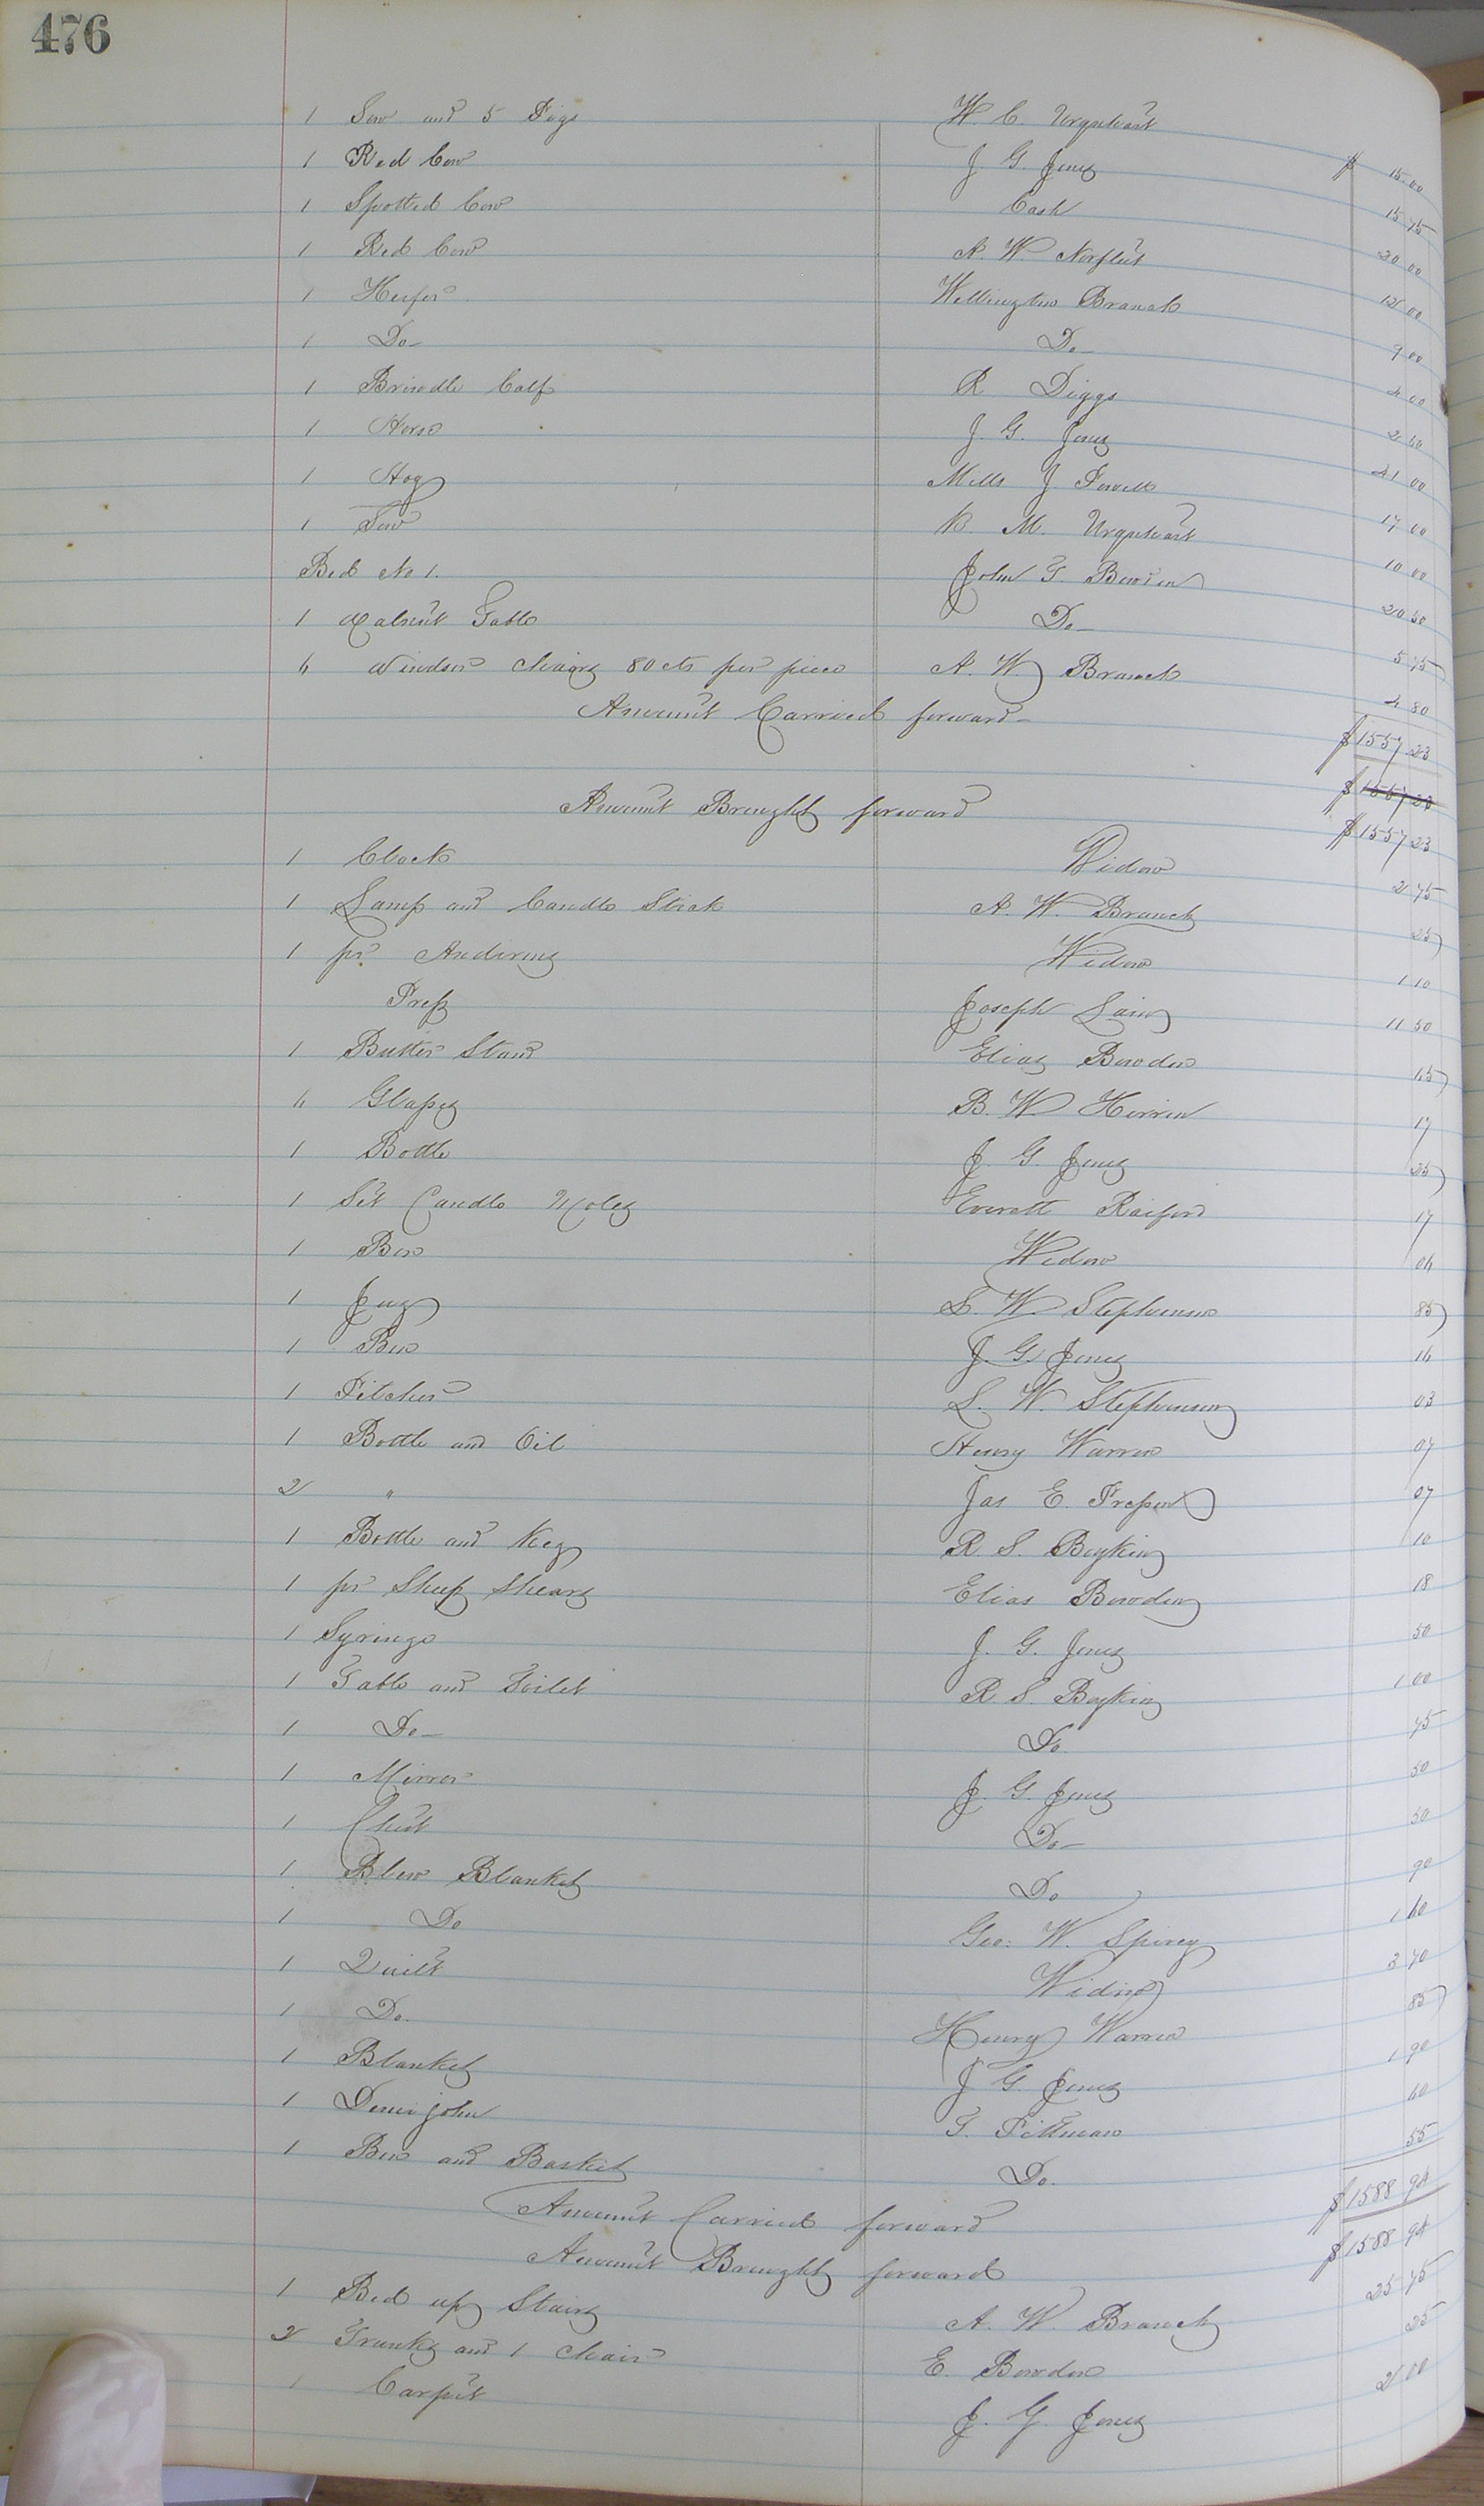 476
1 Sow and 5 Pigs W. C. Urquhart $ 15.00
1 Red Cow J. G. Jones 15 75
1 Spotted Cow Cash 20 00
1 Red Cow A. W. Norfleet 12 00
1 Heifer Wellington Branch 9 00
1 Do- Do- 4 00
1 Brindle Calf R Diggs 2 60
1 Horse J. G. Jones 41 00
1 Hog Mills J Powell 17 00
1 Sow M. Urquhart 10 00
Bed No 1. John T Bowden 20 50
1 Walnut Table Do- 5 75
6 Windsor Chairs 80 cts per piece A. W. Branch 4 80
Amount Carried forward- $1557.23
$1557 23
Amount Brought forward $1557 23
1 Clock Widow 2 75
1 Lamp and Candle Stick A. W. Branch 25
1 pr. Andirons Widow 1 10
Press Joseph Lain 11 50
1 Butter Stand Elias Bowden 65
6 Glasses B. W Herrin 17
1 Bottle J. G. Jones 25
1 Set Candle Molds Everett Raiford 17
1 Box Widow 06
1 Jug S. W. Stephenson 85
1 Box J. G. Jones 16
1 Pitcher S. W. Stephenson 03
1 Bottle and Oil Henry Warren 07
2 " Jas E. 07
1 Bottle and Keg R. S. Boykin 10
1 pr Sheep Shears Elias Bowden 18
1 Syringe J. G. Jones 50
1 Table and Toilet R S. Boykin 1 00
1 Do- Do 75
1 Mirror J. G. Jones 50
1 Chest Do- 50
1 Blue Blanket Do 90
1 Do Geo: W. Spivey 1 60
1 Quilt Widow 3 70
1 Do. Henry Warren 85
1 Blanket J G. Jones 1 90
1 Demijohn T. Pittman 60
1 Box and Basket Do. 55
Amount Carried forward $1588 94
Amount Brought forward $1588 94
1 Bed up Stairs A. W. Branch 25 75
2 Trunks and 1 Chair E. Bowden 25
1 Carpet J. G. Jones 2 00